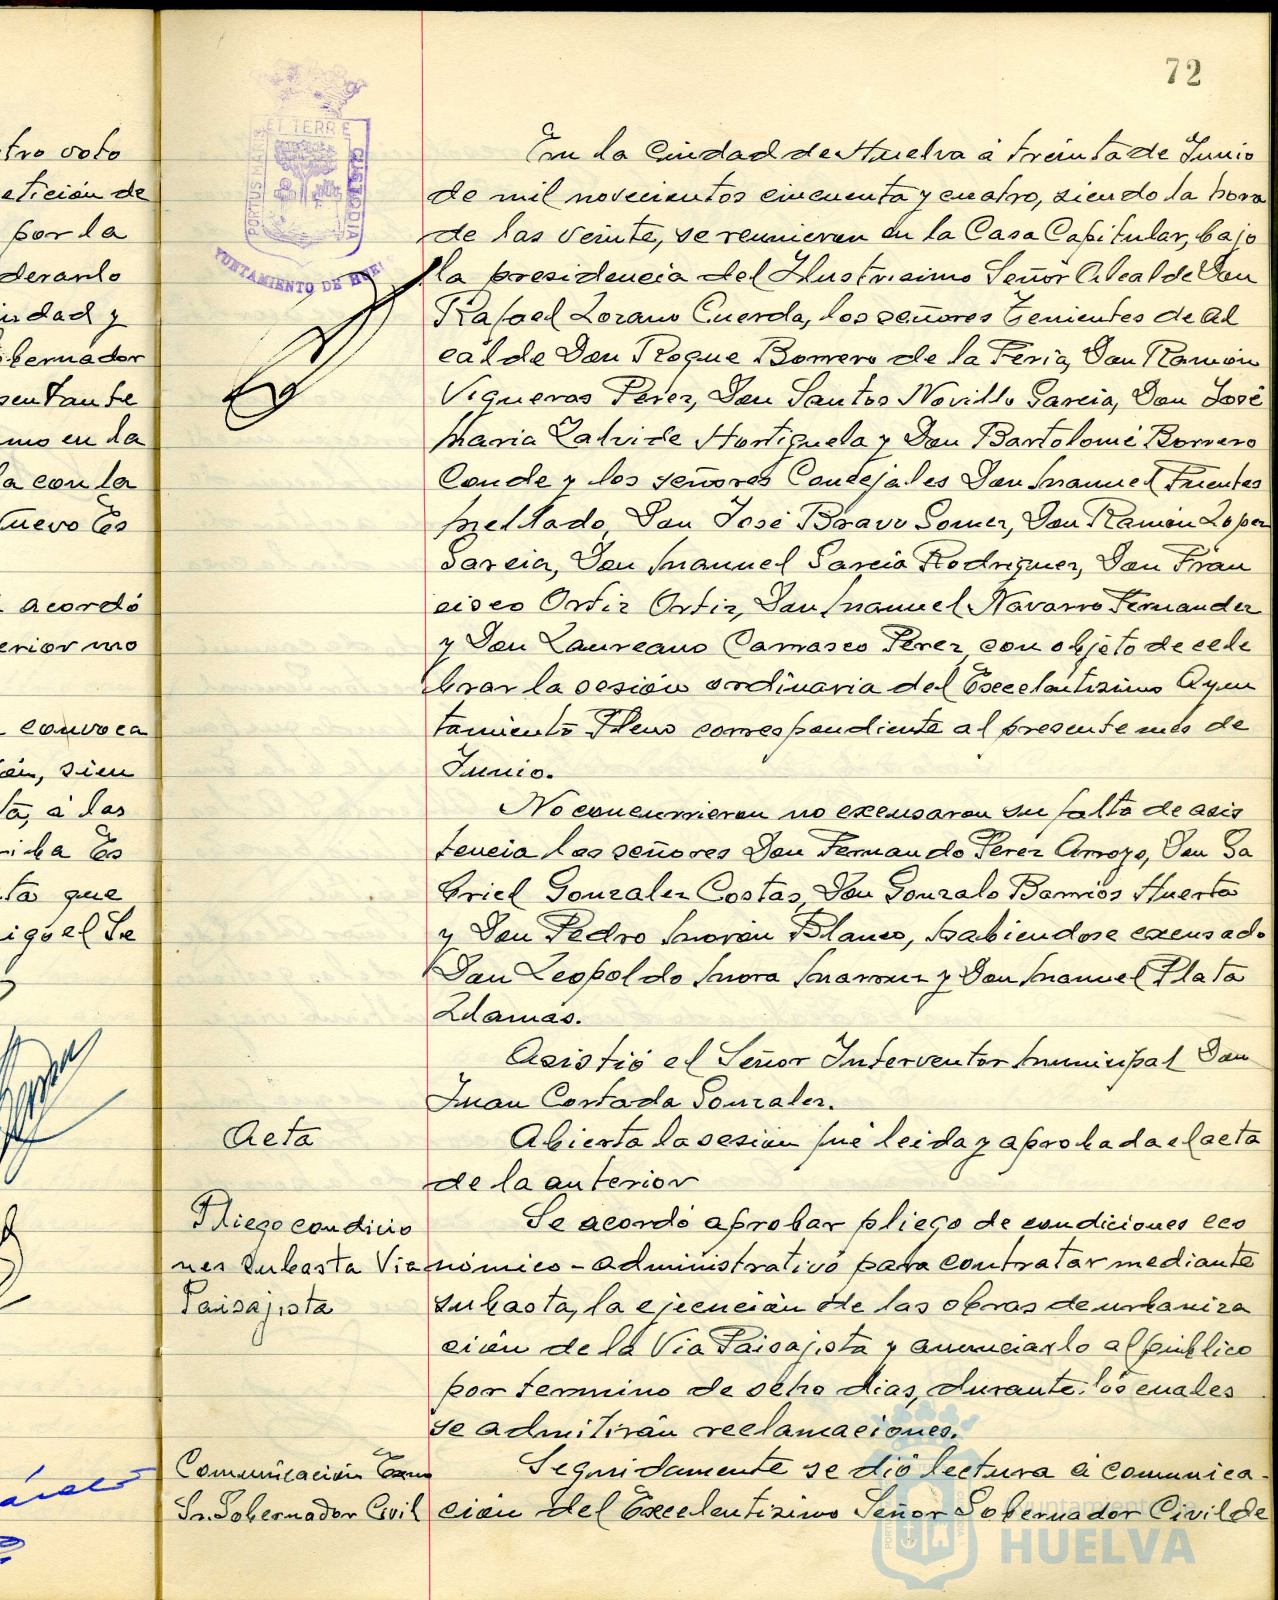 72
PORTUS MARIS ET TERRE CUSTODIA
AYUNTAMIENTO DE HUE
tro voto
etición de
por la
derarlo
idad y
obernador
sentante
mo en la
la con la
Nuevo Es
acordó
erior mo
convoca
ón, sien
ta, á las
Es
ta que
iguel Se
En la Ciudad de Huelva á treinta de Junio
de mil novecientos cincuenta y cuatro, siendo la hora
de las veinte, se reunieron en la Casa Capitular, bajo
la presidencia del Ilustrisimo Señor Alcalde Don
Rafael Lozano Cuerda, los señores Tenientes de Al
calde Don Roque Borrero de la Feria, Don Ramón
Vigueras Perez, Don Santos Novillo Garcia, Don José
Maria Zalvide Hortiguela y Don Bartolomé Borrero
Conde y los señores Concejales Don Manuel Fuentes
Mellado, Don José Bravo Gomez, Don Ramón Lopez
Garcia, Don Manuel Garcia Rodriguez, Don Fran
cisco Ortiz Ortiz, Don Manuel Navarro Fernandez
y Don Laureano Carrasco Perez, con objeto de cele
brar la sesión ordinaria del Excelentisimo Ayun
tamiento Pleno correspondiente al presente mes de
Junio.
No concurrieron no excusaron su falta de asis
tencia los señores Don Fernando Perez Arroyo, Don Ga
briel Gonzalez Costas, Don Gonzalo Barrios Huerta
y Don Pedro Morón Blanco, habiendose excusado
Don Leopoldo Mora Marrmz y Don Manuel Plata
Llamas.
Asistió el Señor Interventor Municipal Don
Juan Cortada Gonzalez.
Acta
Abierta la sesión fué leida y aprobada el acta
de la anterior
Pliego condicio
nes subasta Via
Paisajista
Se acordó aprobar pliego de condiciones eco
nómico-administrativo para contratar mediante
subasta, la ejecución de las obras de urbaniza
ción de la Via Paisajista y anunciarlo al público
por termino de ocho dias, durante los cuales
se admitirán reclamaciones.
Comunicación Exmo
Sr. Gobernador Civil
Seguidamente se dió lectura á comunica-
ción del Excelentisimo Señor Gobernador Civil de
Ayuntamiento de
HUELVA